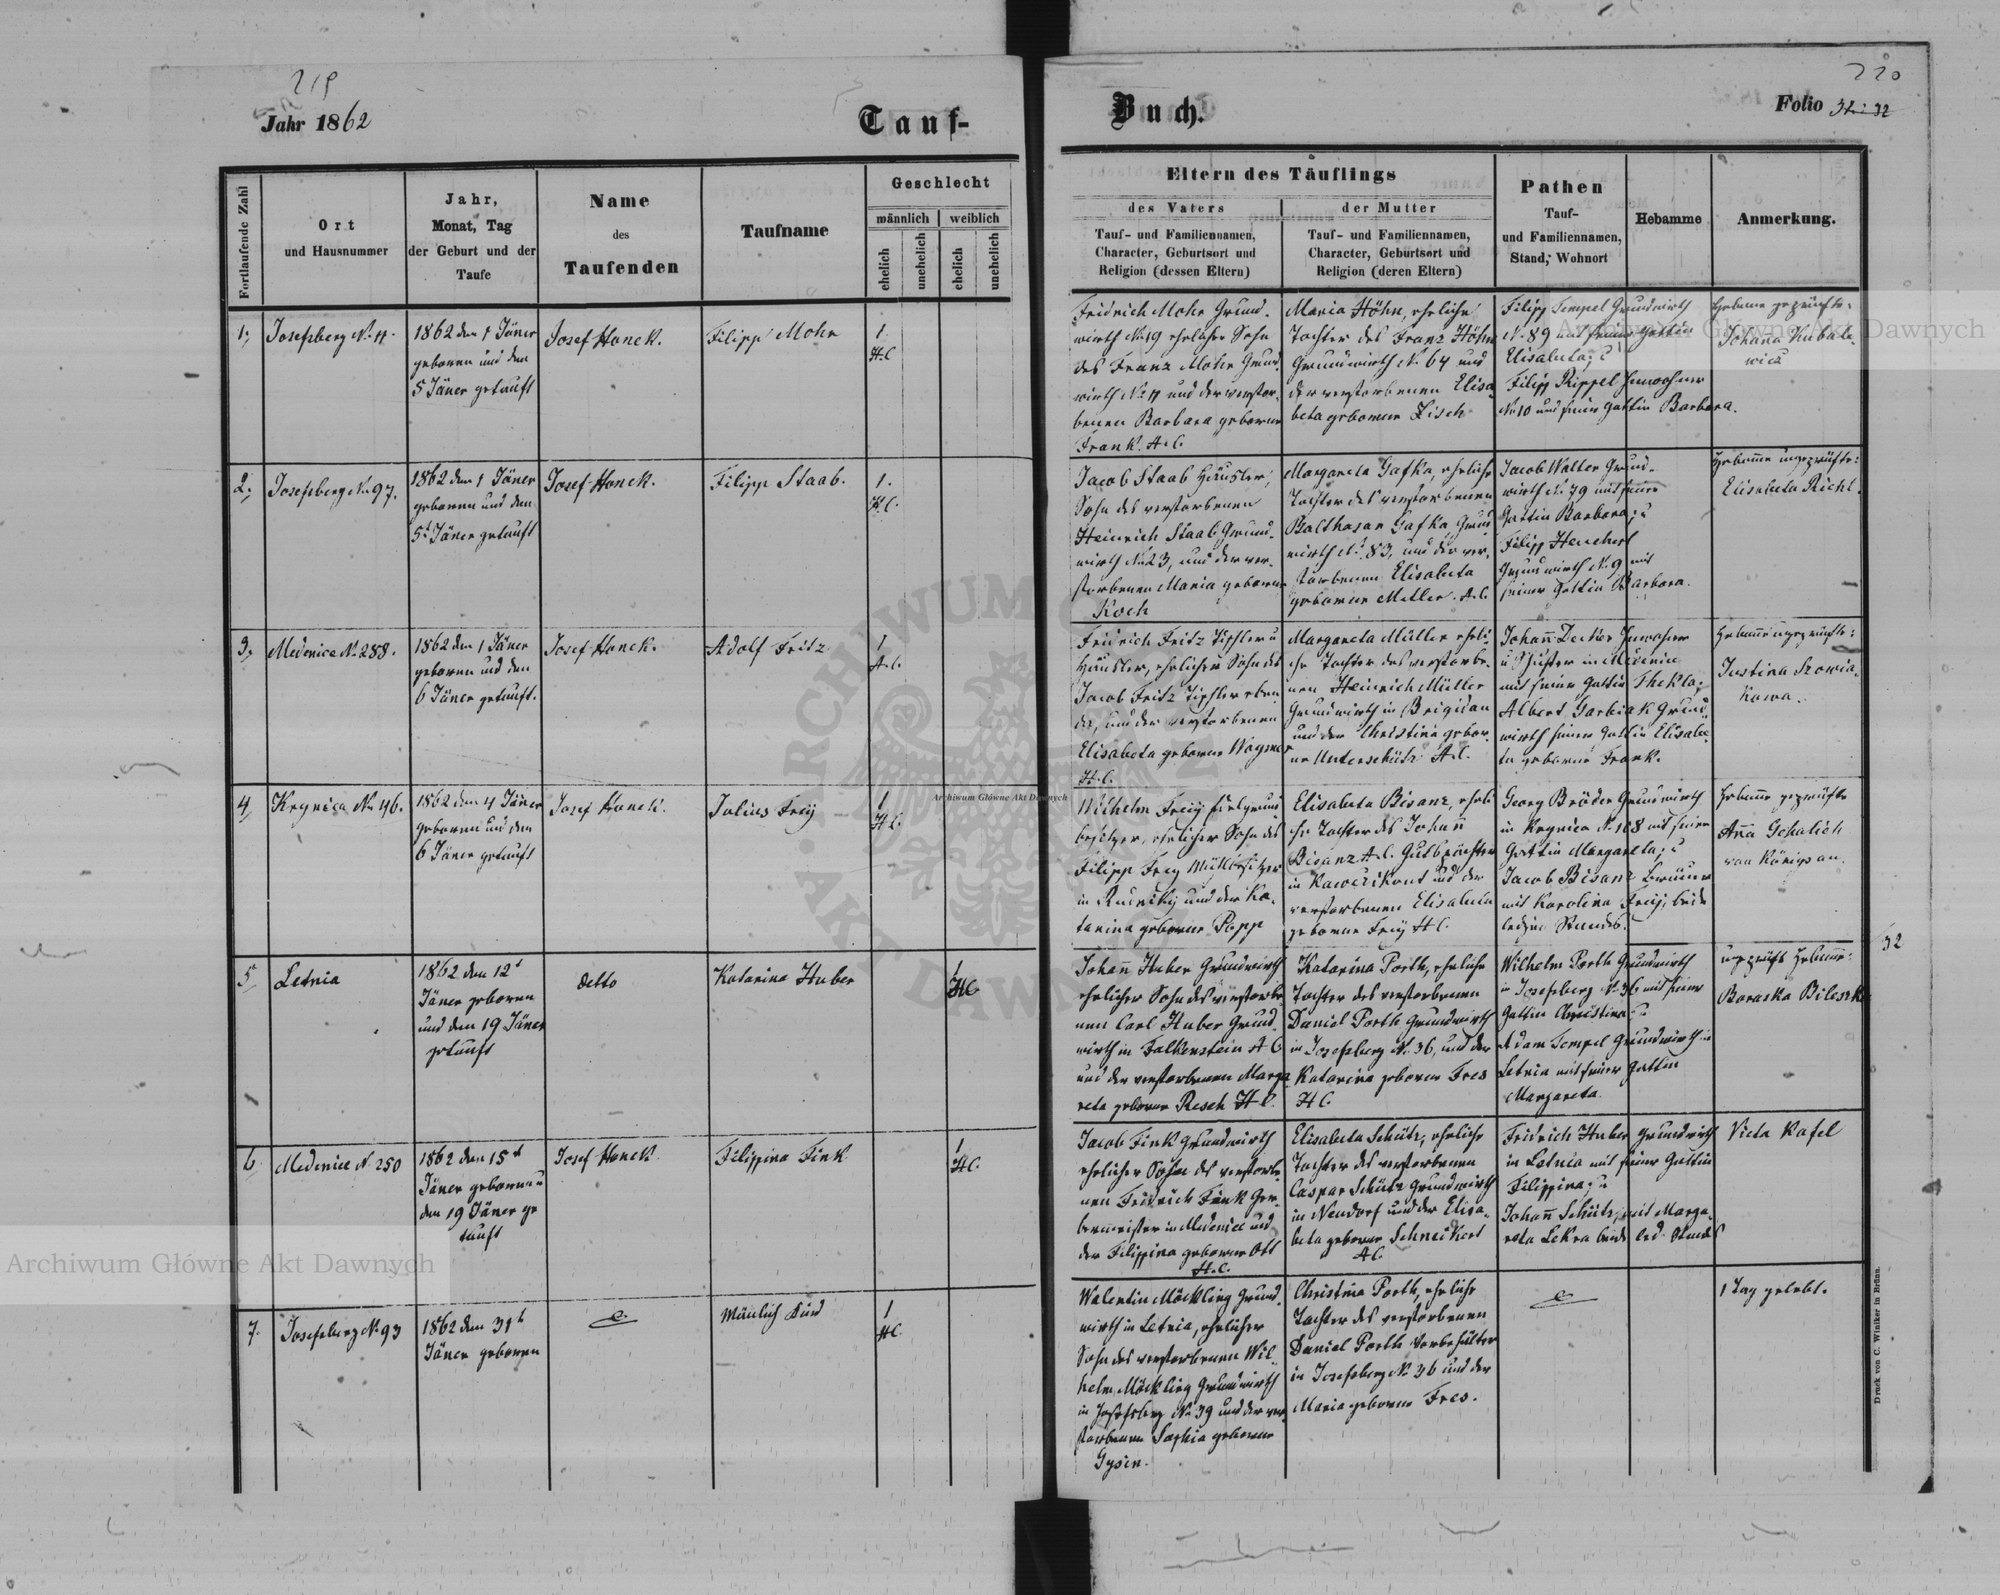 219
Jahr 1862
Tauf-
Buch.
220
Folio 32
Fortlaufende Zahl
Ort
und Hausnummer
Jahr,
Monat, Tag
der Geburt und der
Taufe
Name
des
Taufenden
Taufname
Geschlecht
männlich
weiblich
ehelich
unehelich
ehelich
unehelich
Eltern des Täuflings
des Vaters
Tauf- und Familiennamen,
Character, Geburtsort und
Religion (dessen Eltern)
der Mutter
Tauf- und Familiennamen,
Character, Geburtsort und
Religion (deren Eltern)
Pathen
Tauf-
und Familiennamen,
Stand, Wohnort
Hebamme
Anmerkung.
1.
Josefsberg No 11.
1862 den 1 Jäner
geboren und den
5 Jäner getauft
Josef Honek.
Filipp Mohr
1.
H.C.
Fridrich Mohr Grund-
wirth No 19 ehrlicher Sohn
des Franz Mohr Grund-
wirth No 11 und der verstor-
benen Barbara geborene
Frank. A.C.
Maria Höhn, ehrliche
Tochter des Franz Höhn
Grundwirth No 64 und
der verstorbenen Elisa-
beta geborene Zisch
Filipp Tempel Grundwirth
No 89 und seiner Gattin
Elisabeta; u
Filipp Rippel Innwohner
No 10 und seine Gattin Barbara.
Hebame geprüfte:
Johana Kubale-
wicz
2.
Josefsberg No 97.
1862 den 1 Jäner
geboren und den
5t Jäner getauft
Josef Honek.
Filipp Staab.
1.
H.C.
Jacob Staab Häusler,
Sohn des verstorbenen
Heinrich Staab Grund-
wirth No 23, und der ver-
storbenen Maria geborene
Koch
Margareta Gafka, ehrliche
Tochter des verstorbenen
Balthasar Gafka Grund
wirth No 83, und der ver-
storbenen Elisabeta
geborene Müller. A.C.
Jacob Walter Grund-
wirth No 79 mit seiner
Gattin Barbara; u
Filipp Henchert
Grundwirth No 9 mit
seiner Gattin Barbara.
Hebame ungeprüfte:
Elisabeta Richl.
3.
Medenice No 288.
1862 den 1 Jäner
geboren und den
6 Jäner getauft.
Josef Honek.
Adolf Fritz
1
A.C.
Fridrich Fritz Tischler u
Häusler, ehrlicher Sohn des
Jacob Fritz Tischler eben
da, und der verstorbenen
Elisabeta geborene Wagner
H.C.
Margareta Müller ehrli-
che Tochter des verstorbe-
nen Heinrich Müller
Grundwirth in Brigidau
und der Christina gebor-
ne Unterschütz A.C.
Johañ Decker Innwohner
u Schuster in Medenice
mit seiner Gattin Thekla;
Albert Garbiak Grund-
wirth seiner Gattin Elisabe-
ta geborene Frank.
Hebame ungeprüfte:
Justina Szowia-
kowa.
4.
Krynica No 46.
1862 den 4 Jäner
geboren und den
6 Jäner getauft
Josef Honek.
Julius Freÿ
1
H.C.
Wilhelm Freÿ
besitzer, ehrlicher Sohn des
Filipp Frey Mühlbesitzer
in Rudniky und der Ka-
tarina geborene Popp
Elisabeta Bisanz, ehrli
che Tochter des Johann
Bisanz A.C. Gutspächter
in Kawczikont und der
verstorbenen Elisabeta
geborene Freÿ H.C.
Georg Bräder Grundwirth
in Krynica No 108 mit seiner
Gattin Margareta; u
Jacob Bisanz
mit Karolina Freÿ, beide
ledigen Standes.
Hebame geprüfte
Añа Schalich
von Königsau.
5.
Letnia
1862 den 12t
Jäner geboren
und den 19 Jäner
getauft
detto
Katarina Huber
1
H.C.
Johañ Huber Grundwirth
ehrlicher Sohn des verstorbe-
nen Carl Huber Grund-
wirth in Falkenstein A.C.
und der verstorbenen Marga-
reta geborene Resch H.C.
Katarina Porth, ehrliche
Tochter des verstorbenen
Daniel Porth Grundwirth
in Josefsberg No 36, und der
Katarina geborene Fres
H.C.
Wilhelm Porth Grundwirth
in Josefsberg No 36 mit seiner
Gattin Christina; u
Adam Tempel Grundwirth in
Letnia mit seiner Gattin
Margareta.
ungeprüfte Hebame:
Baraska Bileszka
32
6.
Medenice No 250
1862 den 15t
Jäner geboren u
den 19 Jäner ge
tauft
Josef Honek.
Filippina Fink
1
H.C.
Jacob Fink Grundwirth
ehrlicher Sohn des verstorbe-
nen Fridrich Fink Ger-
bermeister in Medenice und
der Filippina geborene Ott
H.C.
Elisabeta Schütz, ehrliche
Tochter des verstorbenen
Caspar Schütz Grundwirth
in Neudorf und der Elisa-
beta geborene Schneikert
A.C.
Fridrich Huber Grundwirth
in Letnia mit seiner Gattin
Filippina; u
Johañ Schütz, mit Marga-
reta Lekra beide led. Standes
Victa Kafel
7.
Josefsberg No 93
1862 den 31t
Jäner geboren
Mänlich Kind
1
H.C.
Walentin Möckling Grund-
wirth in Letnia, ehrlicher
Sohn des verstorbenen Wil-
helm Möckling Grundwirth
in Josefsberg No 39 und der ver-
storbenen Sophia geborene
Gysin.
Christina Porth, ehrliche
Tochter des verstorbenen
Daniel Porth Vorbehälter
in Josefsberg No 36 und der
Maria geborene Fres.
1 Tag gelebt.
Druck von C. Winiker in Brünn.
Archiwum Główne Akt Dawnych
Archiwum Główne Akt Dawnych
Archiwum Główne Akt Dawnych